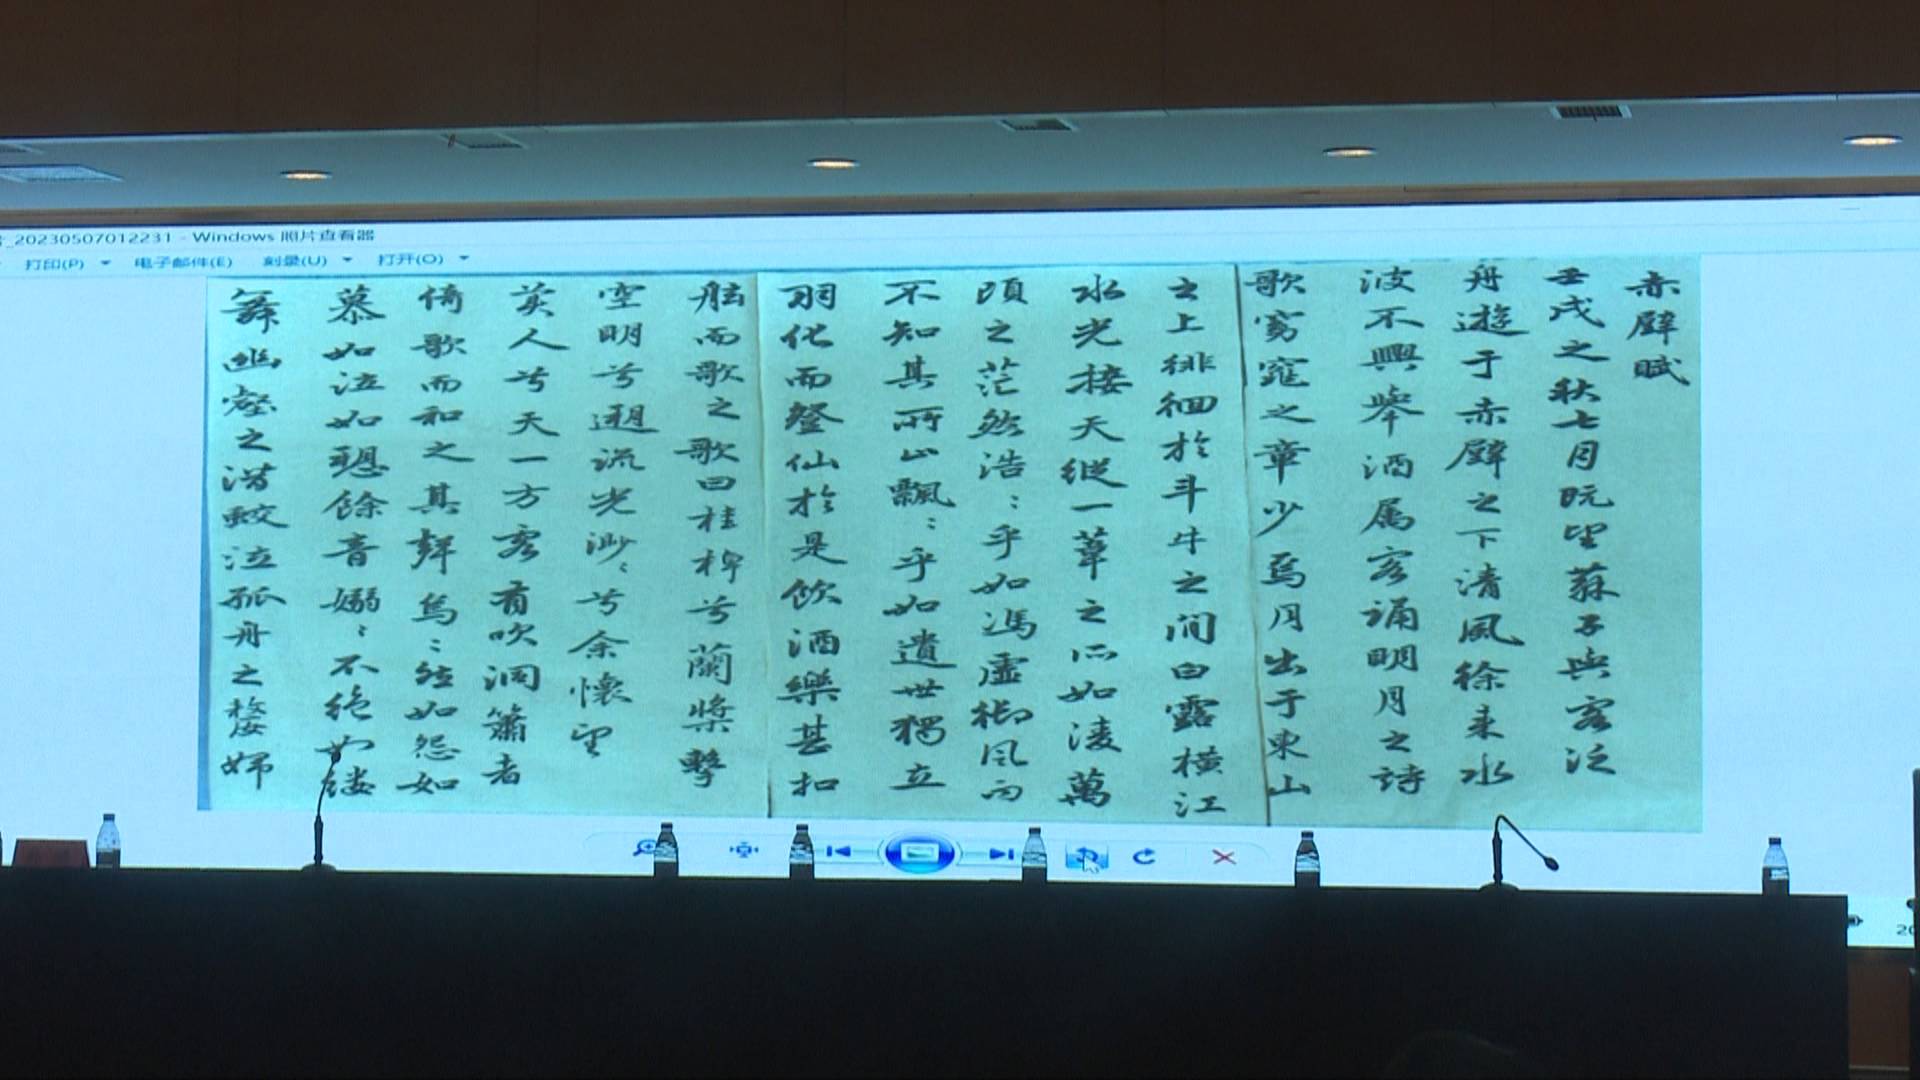 _20230507012231 - Windows 照片查看器
打印(P) 电子邮件(E) 刻录(U) 打开(O)
赤壁賦
壬戌之秋七月既望蘇子與客泛
舟遊于赤壁之下清風徐来水
波不興舉酒属客誦明月之詩
歌窈窕之章少焉月出于東山
之上徘徊於斗牛之间白露横江
水光接天縱一葦之所如凌萬
頃之茫然浩:乎如馮虛御風而
不知其所止飄:乎如遺世獨立
羽化而登仙於是飲酒樂甚扣
舷而歌之歌曰桂棹兮蘭槳擊
空明兮遡流光渺:兮余懷望
美人兮天一方客有吹洞簫者
倚歌而和之其聲烏:然如怨如
慕如泣如聴餘音嫋:不绝如缕
舞幽壑之潜蛟泣孤舟之嫠婦
20